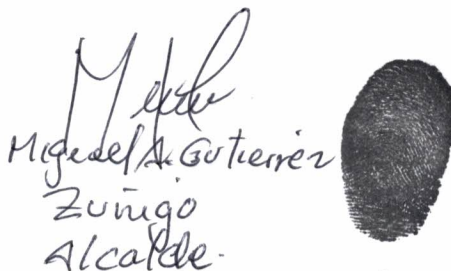 Miguel A. Gutierrez
Zuñigo
Alcalde.